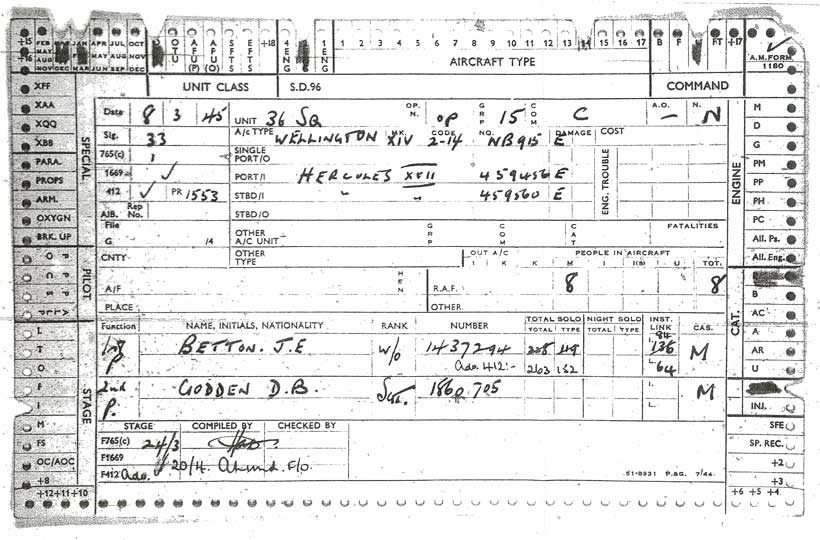 +15 FEB MAR JAN APR JUL OCT OTU AFU (P) AFU (O) SFTS EFTS +18 4 ENG 1 ENG 1 2 3 4 5 6 7 8 9 10 11 12 13 14 15 16 17 B F FT +17
+16 MAY AUG NOV DEC MAR JUN SEP DEC AIRCRAFT TYPE A.M. FORM 1180
XFF UNIT CLASS S.D.96 COMMAND
XAA Date 8 3 45 UNIT 36 SQ OP. N. OP GRP 15 COM C A.O. - N. N M
XQQ Sig. 33 A/C TYPE WELLINGTON MK. XIV CODE 2-14 NO. NB915 DAMAGE E COST D
XBB 765(c) 1 SINGLE PORT/O G
PARA. 1669 ✓ PORT/I HERCULES XVII 459456 E PM
PROPS 412 ✓ PR 1553 STBD/I " " 459560 E PP
ARM. AIB. Rep No. STBD/O PH
SPECIAL ENG. TROUBLE ENGINE
OXYGN File OTHER A/C UNIT GRP COM CAT FATALITIES PC
BRK. UP G /4 All. Ps.
CNTY OTHER TYPE OUT A/C PEOPLE IN AIRCRAFT All. Eng.
I K K M I I(S) I U TOT.
PILOT A/F HEN R.A.F. 8 8 B
PLACE OTHER AC
CAT.
Function NAME, INITIALS, NATIONALITY RANK NUMBER TOTAL SOLO NIGHT SOLO INST. LINK CAS. A
TOTAL TYPE TOTAL TYPE 84
P BETTON. J.E W/O 1437294 49 136 M AR
412:- 2103 152 L 64 U
2nd P. GODDEN D.B. Sgt. 1860705 I. L. M
STAGE INJ.
STAGE COMPILED BY CHECKED BY SFE
F765(c) 24/3 SP. REC.
F1669 +2
F412 20/4. F/O. 51-8931 P.&G. 7/44. +3
L T O F I M FS OC/AOC +8
+12 +11 +10 +6 +5 +4